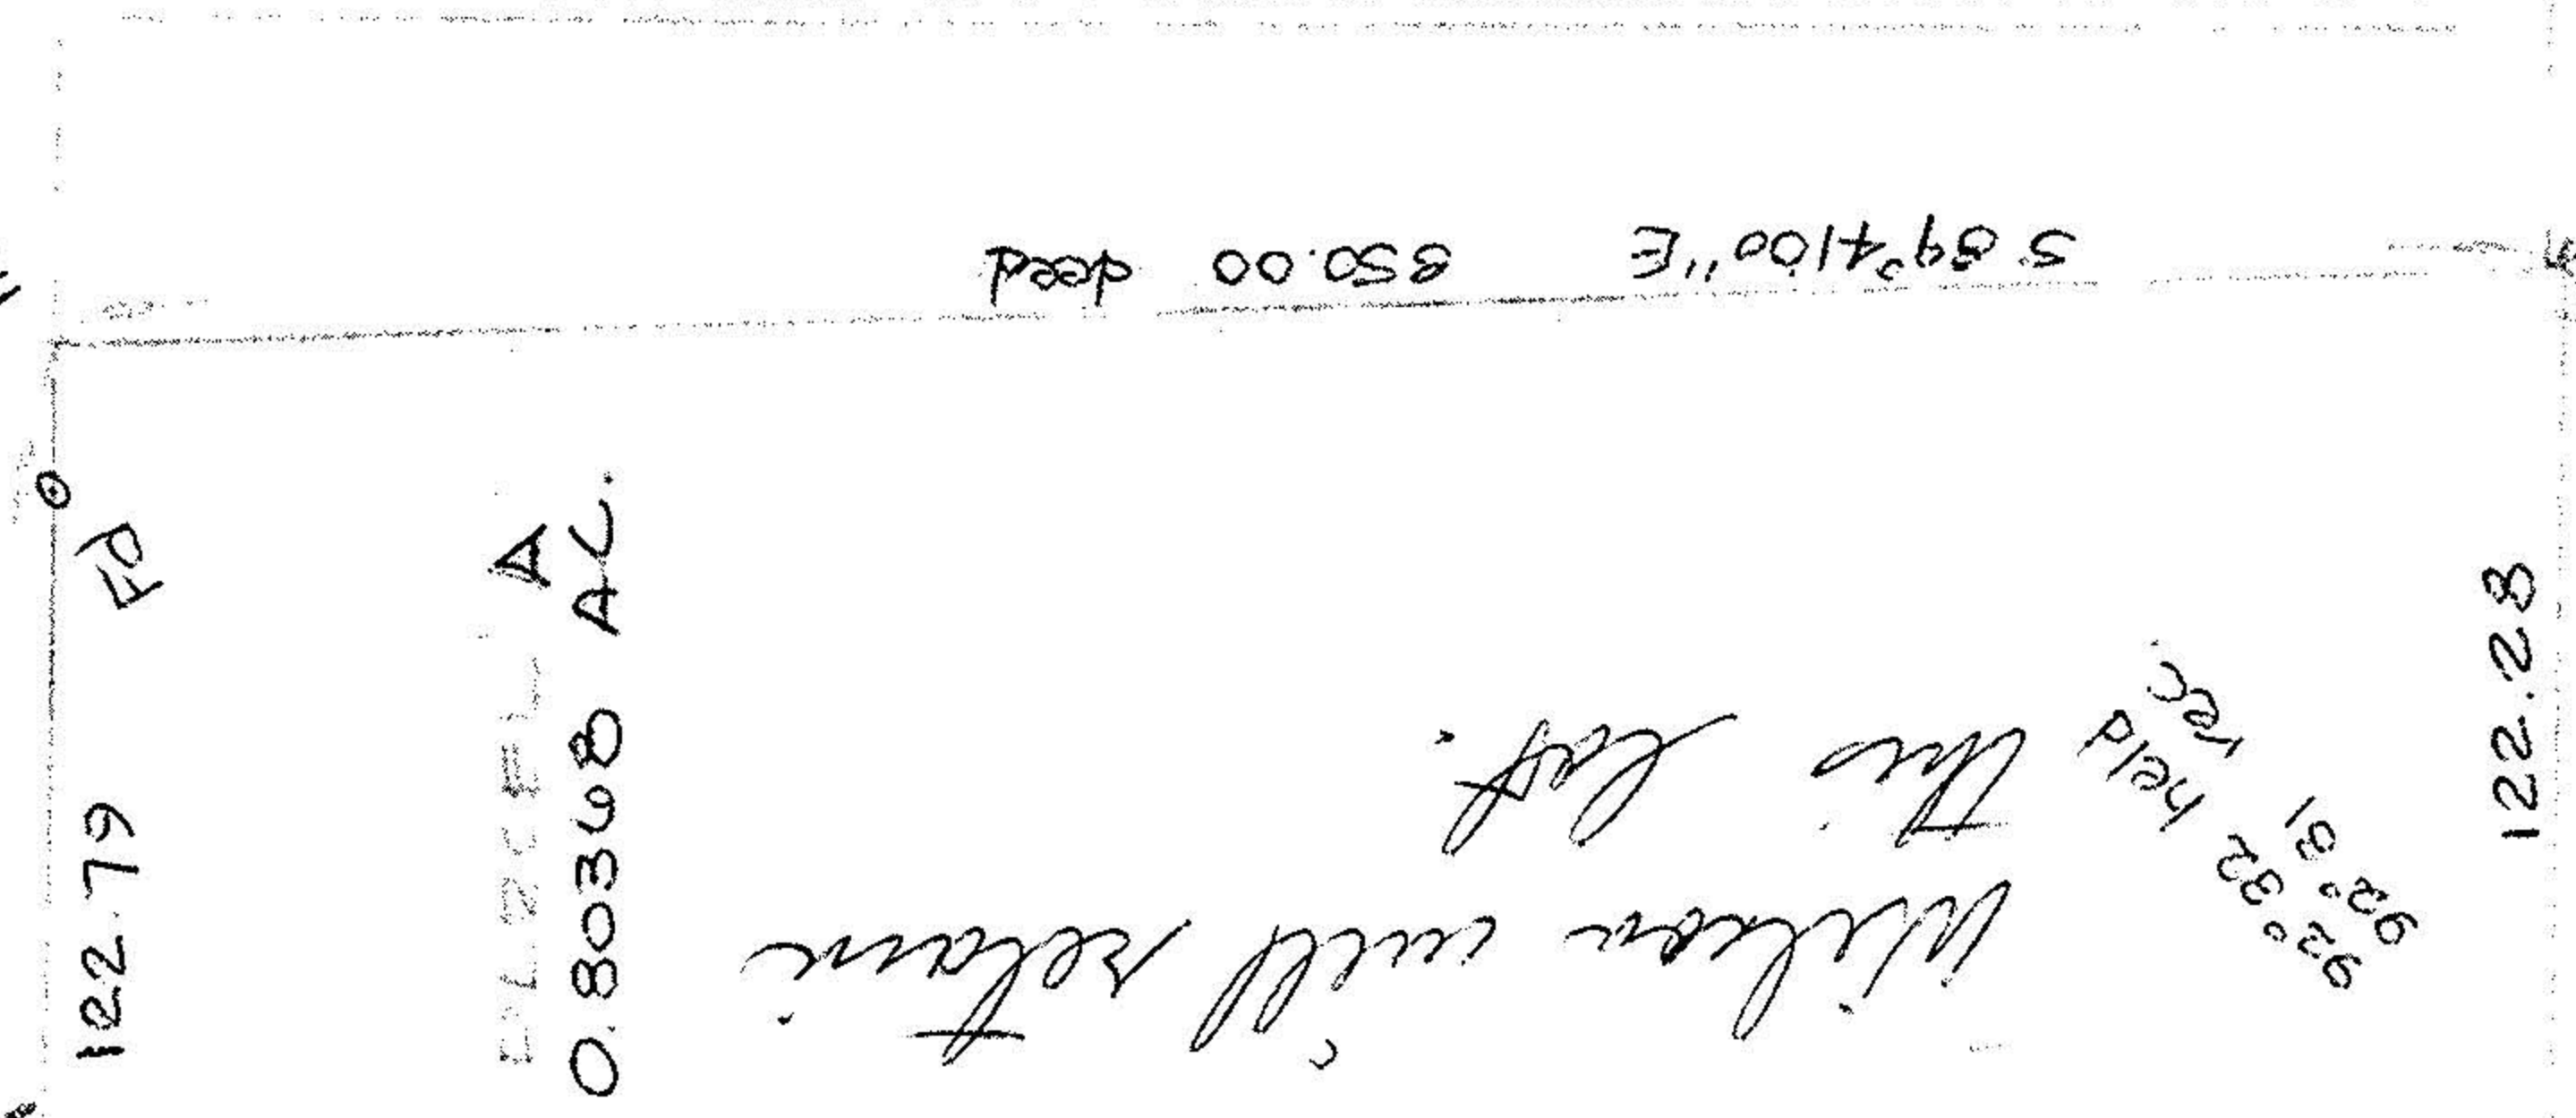 S 89°41'00"E 850.00 deed
Fd
122.79
PARCEL A
0.80368 AC.
Wilson will retain
this lot.
92°32 held
92°31 rec.
122.28